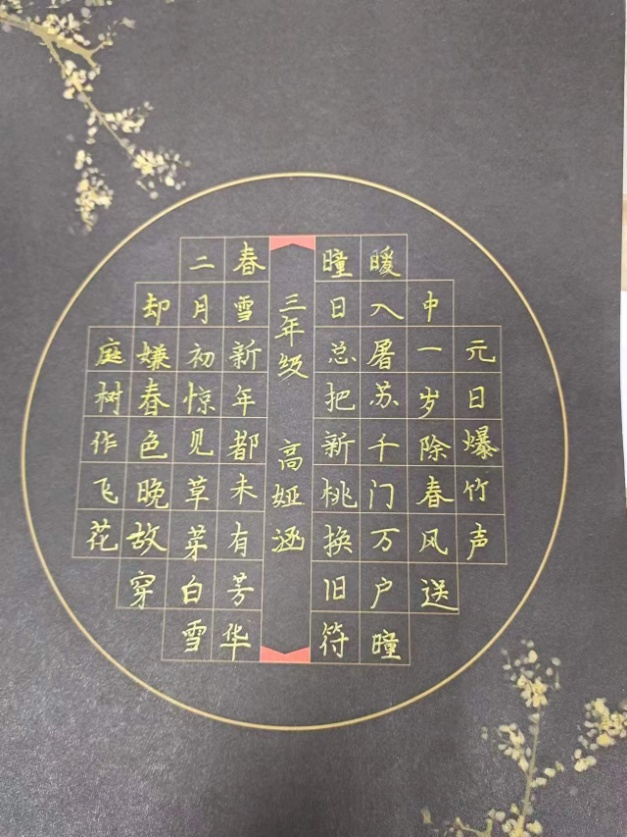 元日爆竹声
中一岁除春风送
暖入屠苏千门万户曈
曈日总把新桃换旧符
三年级 高娅涵
春雪新年都未有芳华
二月初惊见草芽白雪
却嫌春色晚故穿
庭树作飞花